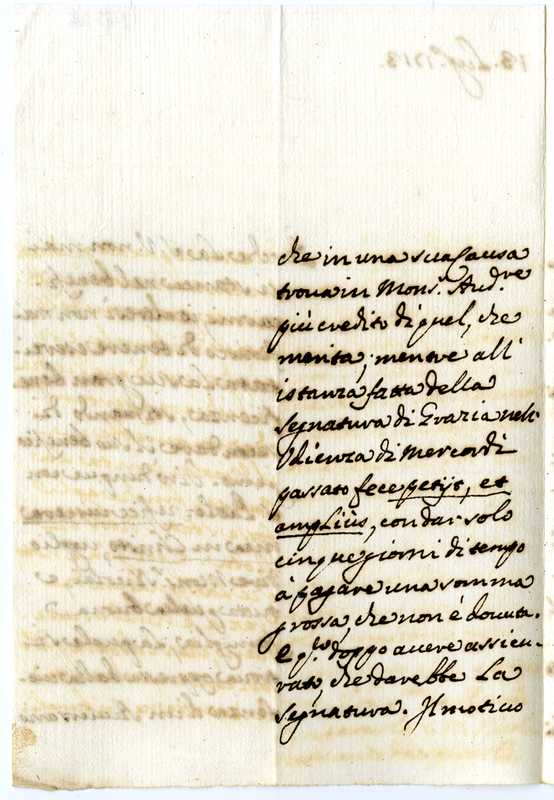 che in una sua Causa
trova in Mons.r Aud.re
più credito di quel, che
merita; mentre all'
istanza fatta della
Segnatura di Grazia nell'
Udienza di Mercordì
passato fece petijt, et
amplius, con dar solo
cinque giorni di tempo
à pagare una somma
grossa, che non è dovuta.
E doppo avere assicu-
rato, che darebbe La
Segnatura. Il motivo